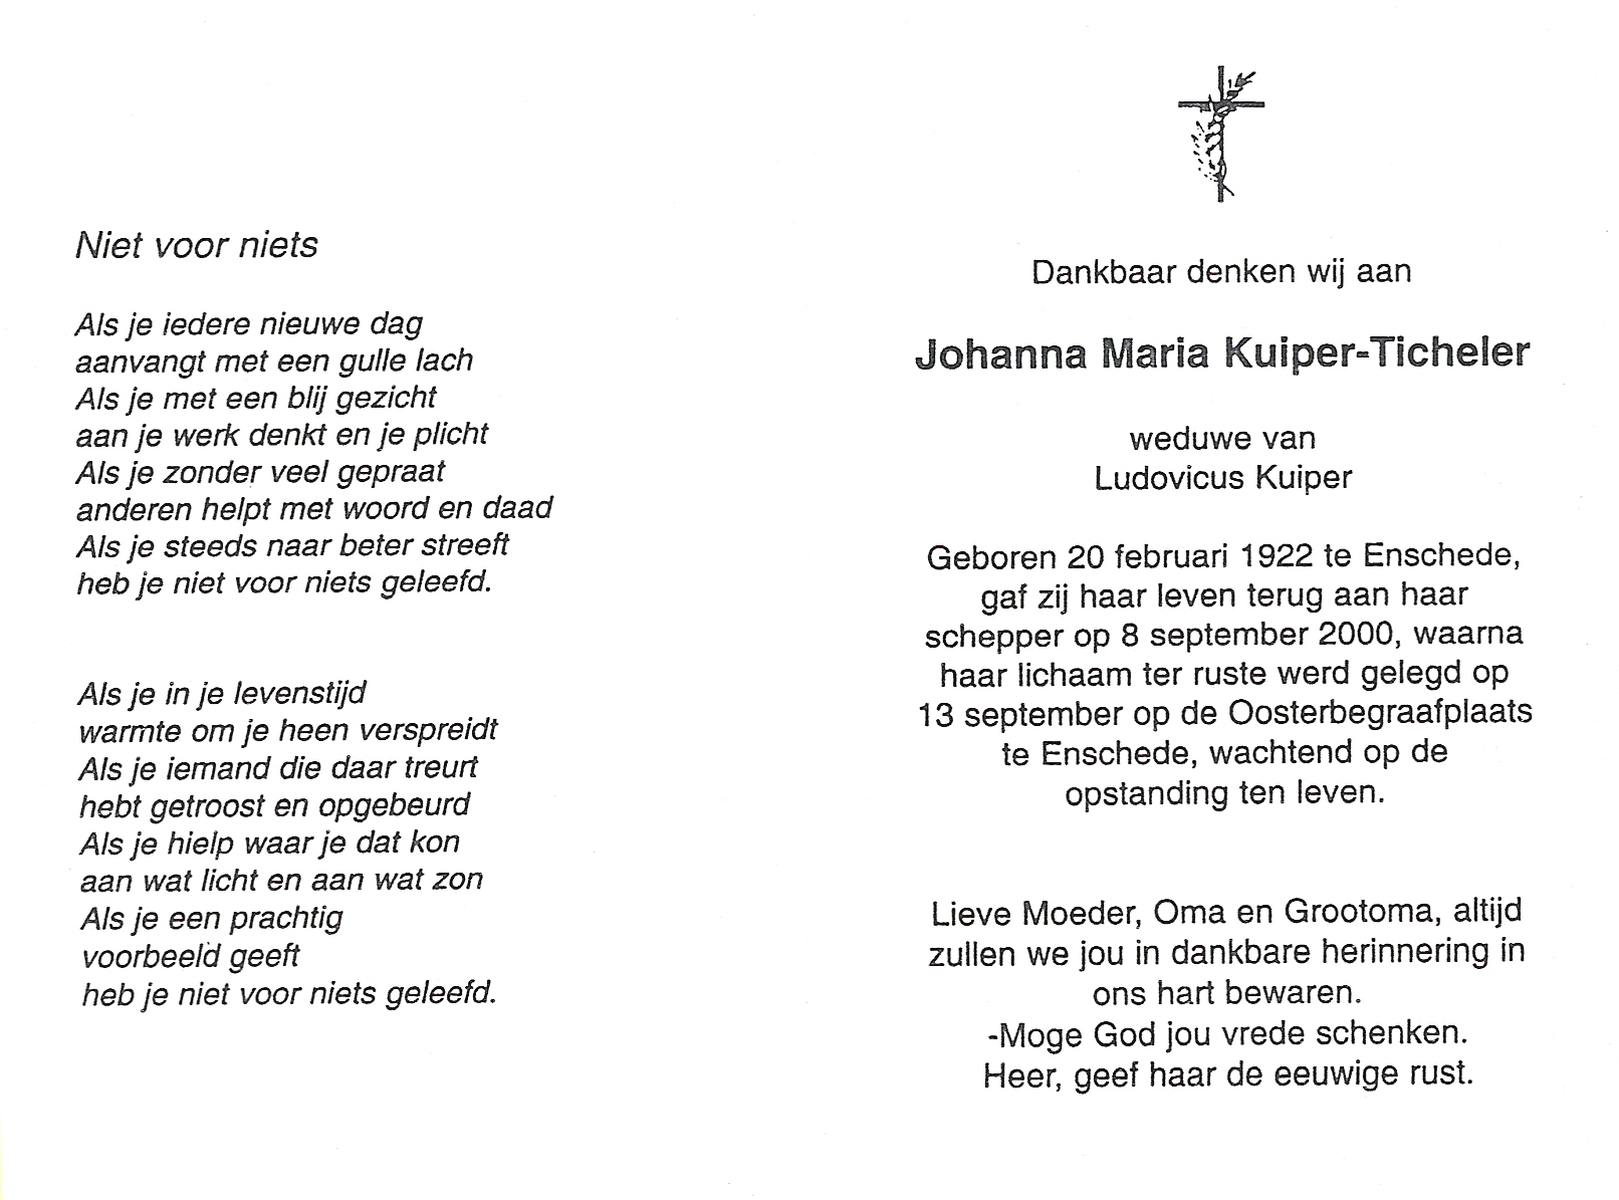 Niet voor niets
Als je iedere nieuwe dag
aanvangt met een gulle lach
Als je met een blij gezicht
aan je werk denkt en je plicht
Als je zonder veel gepraat
anderen helpt met woord en daad
Als je steeds naar beter streeft
heb je niet voor niets geleefd.
Als je in je levenstijd
warmte om je heen verspreidt
Als je iemand die daar treurt
hebt getroost en opgebeurd
Als je hielp waar je dat kon
aan wat licht en aan wat zon
Als je een prachtig
voorbeeld geeft
heb je niet voor niets geleefd.
Dankbaar denken wij aan
Johanna Maria Kuiper-Ticheler
weduwe van
Ludovicus Kuiper
Geboren 20 februari 1922 te Enschede,
gaf zij haar leven terug aan haar
schepper op 8 september 2000, waarna
haar lichaam ter ruste werd gelegd op
13 september op de Oosterbegraafplaats
te Enschede, wachtend op de
opstanding ten leven.
Lieve Moeder, Oma en Grootoma, altijd
zullen we jou in dankbare herinnering in
ons hart bewaren.
-Moge God jou vrede schenken.
Heer, geef haar de eeuwige rust.